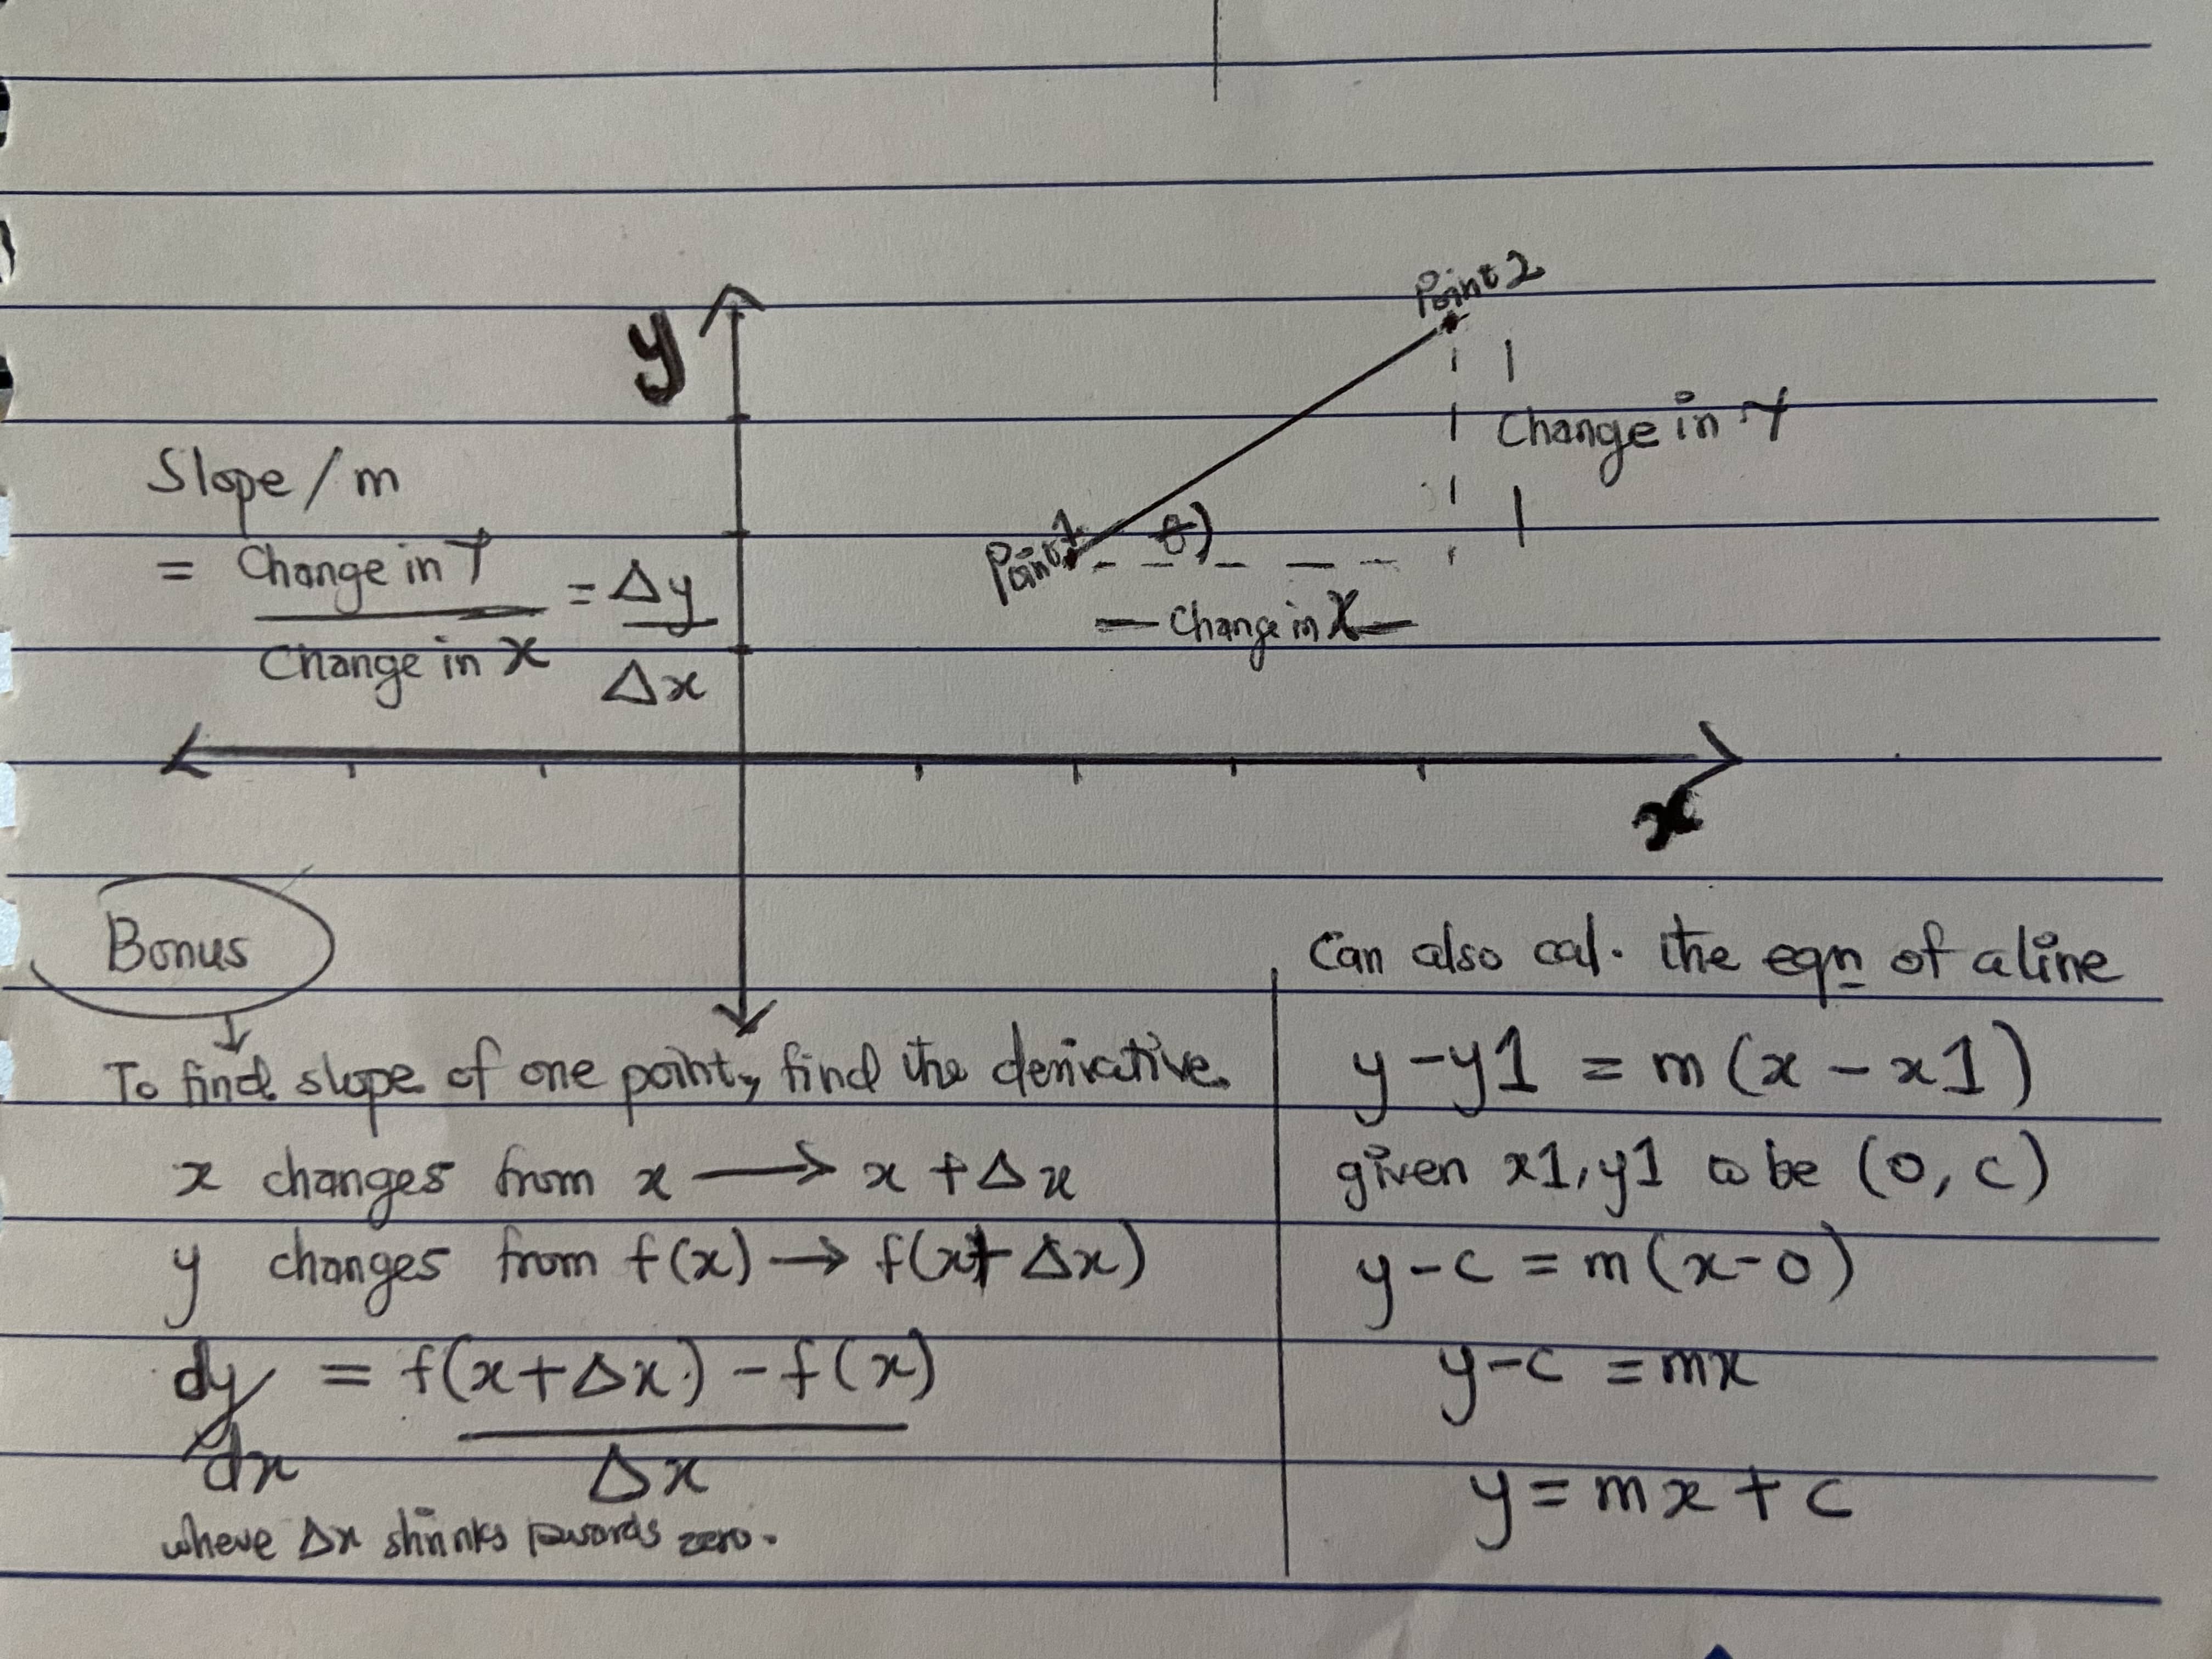 y
Point 2
Change in Y
Slope/m
= Change in Y = Δy
Change in x Δx
Point 1
θ
Change in X
x
Bonus
To find slope of one point, find the derivative.
x changes from x → x + Δx
y changes from f(x) → f(x + Δx)
dy/dx = f(x+Δx) - f(x)
Δx
where Δx shrinks towards zero.
Can also cal. the eqn of a line
y - y1 = m(x - x1)
given x1, y1 to be (0, c)
y - c = m(x-0)
y - c = mx
y = mx + c